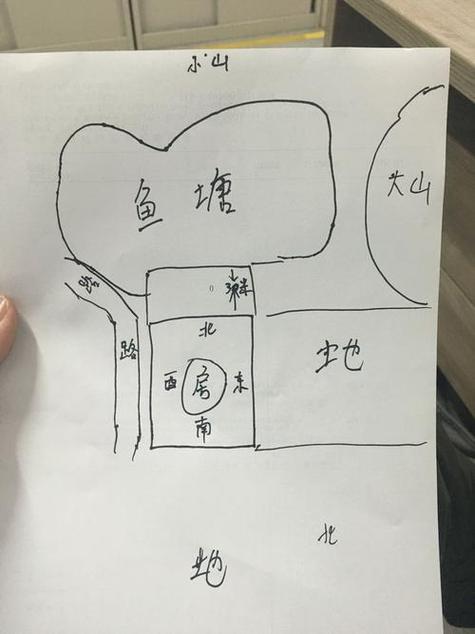 小山
鱼塘
大山
路
3米
北
路
西 房 东
南
地
北
地